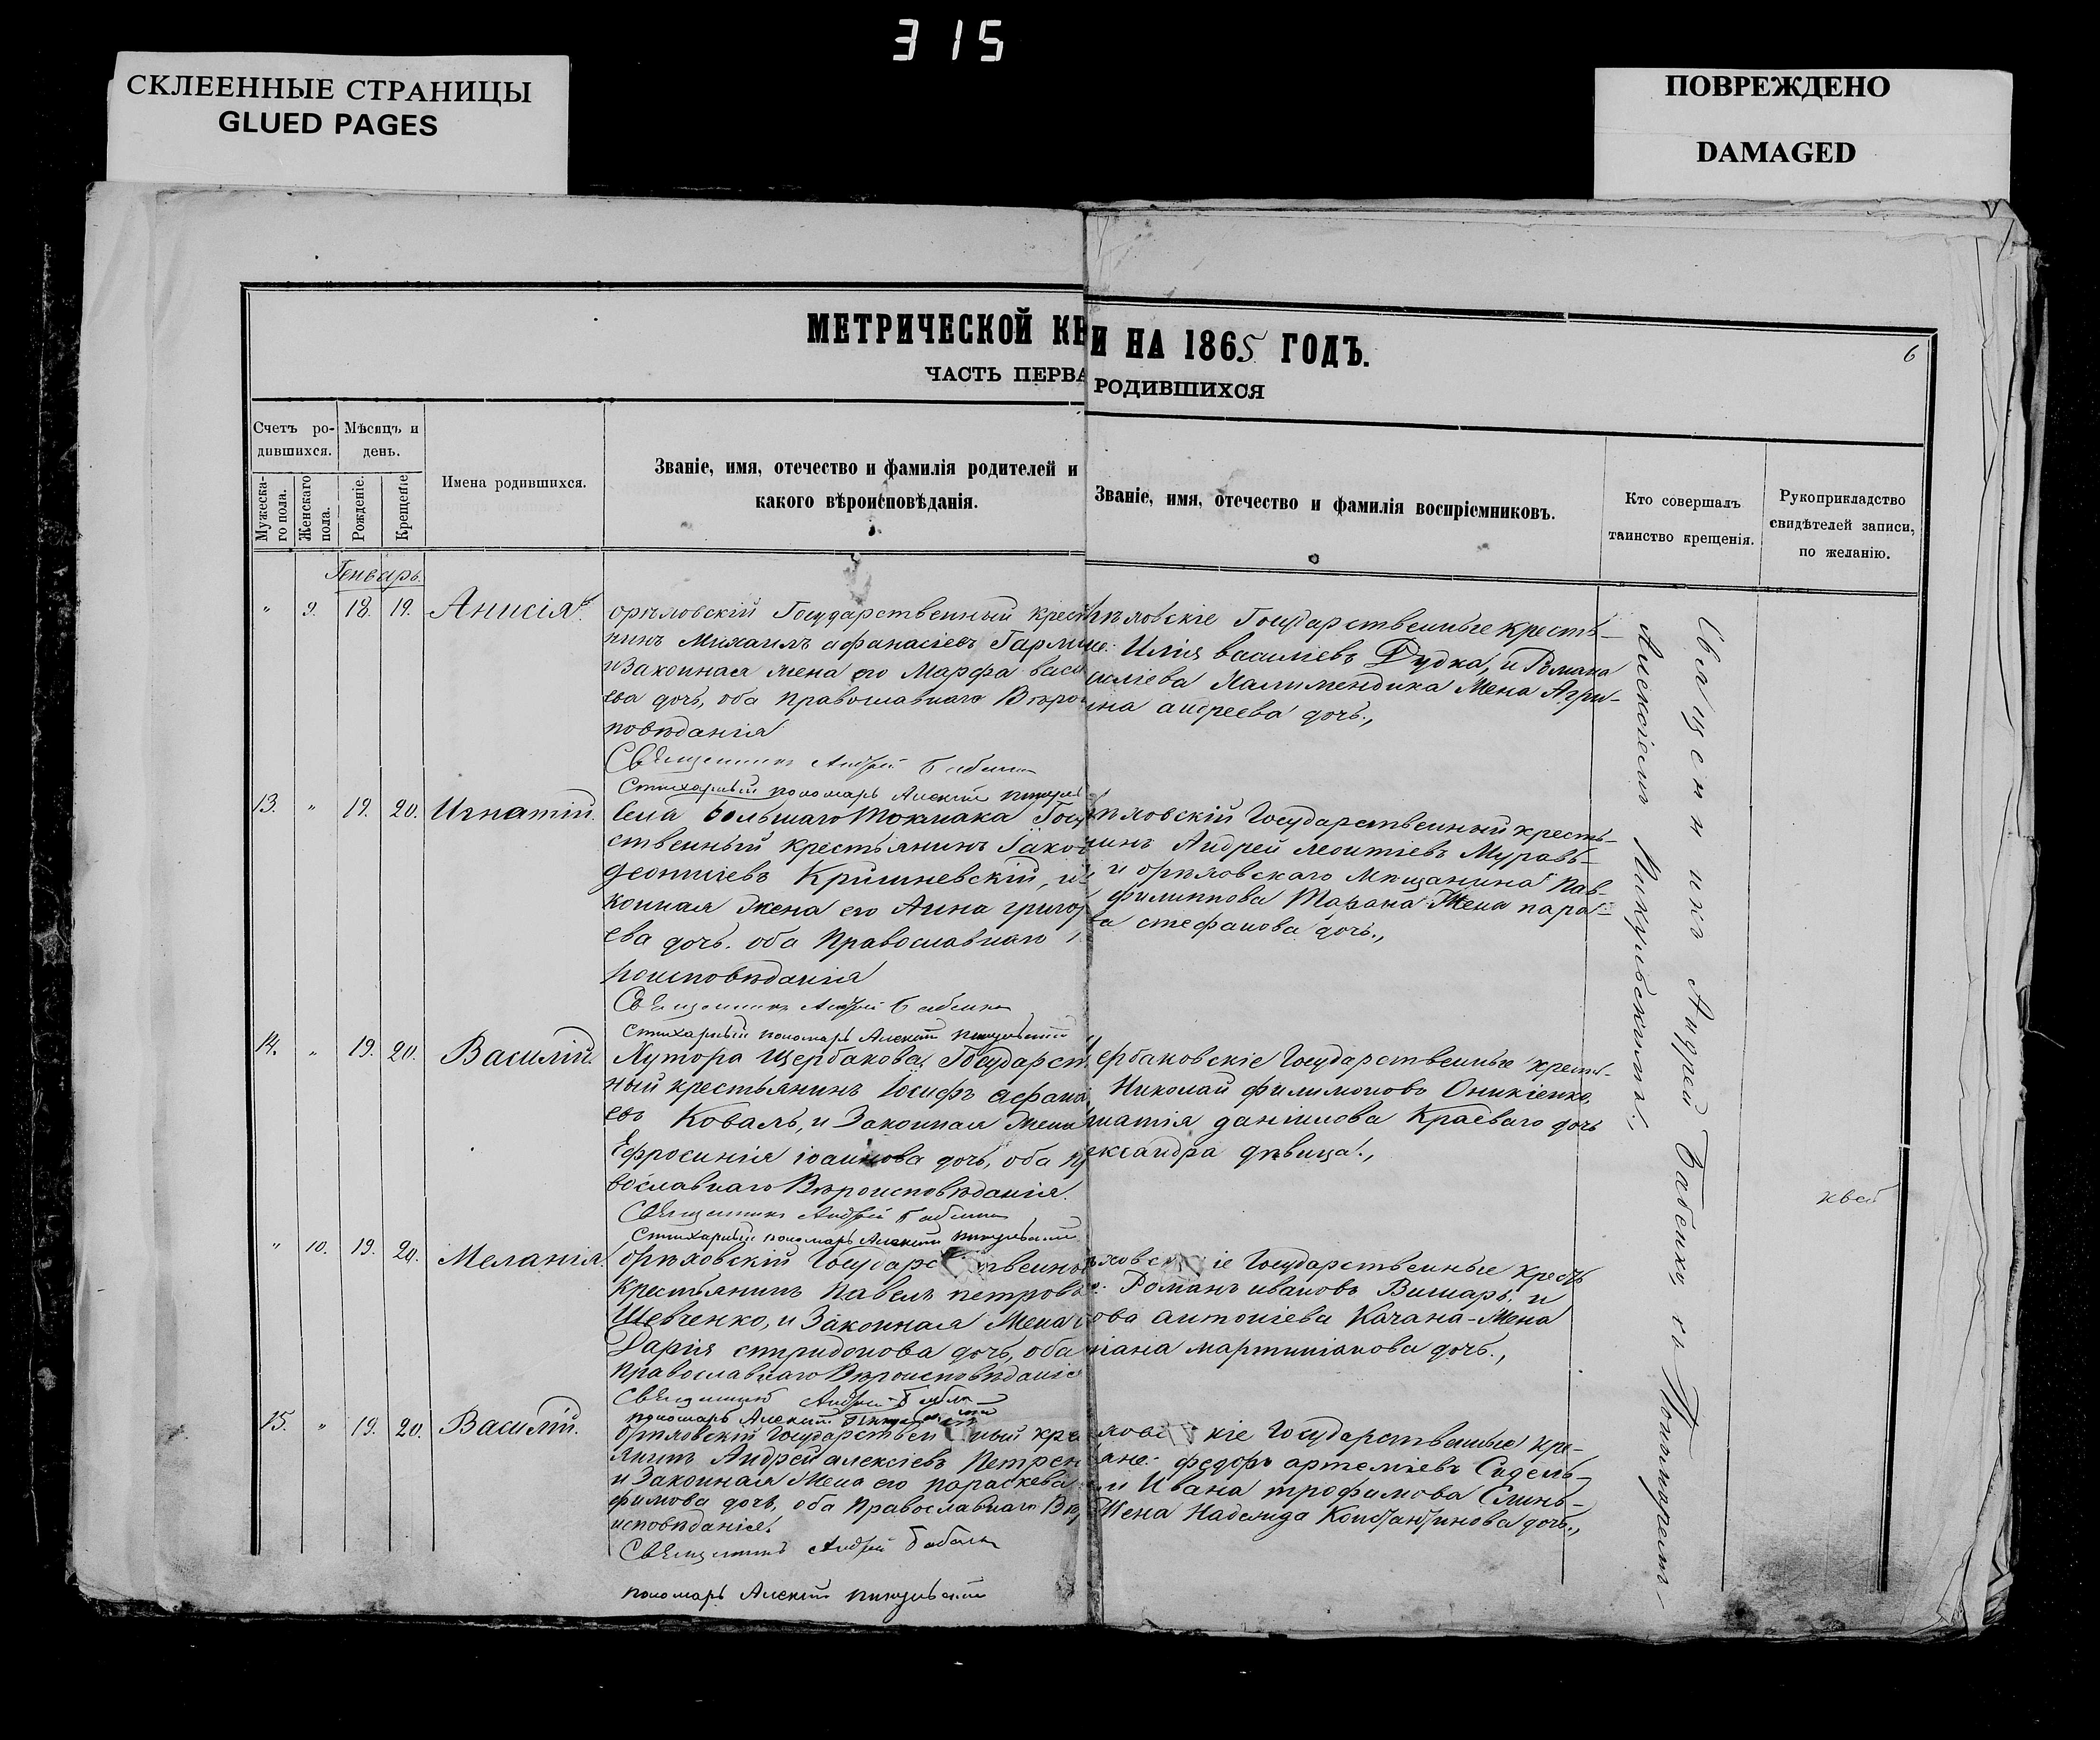 315
СКЛЕЕННЫЕ СТРАНИЦЫ
GLUED PAGES
ПОВРЕЖДЕНО
DAMAGED
МЕТРИЧЕСКОЙ КН
И НА 1865 ГОДЪ.
6
ЧАСТЬ ПЕРВА
РОДИВШИХСЯ
Счетъ ро-
дившихся.
Мужеска-
го пола.
Женскаго
пола.
Мѣсяцъ и
день.
Рожденіе.
Крещеніе
Имена родившихся.
Званіе, имя, отечество и фамилія родителей и
какого вѣроисповѣданія.
Званіе, имя, отечество и фамилія воспріемниковъ.
Кто совершалъ
таинство крещенія.
Рукоприкладство
свидѣтелей записи,
по желанію.
Генварь.
" 9. 18. 19. Анисія.
орѣховскій Государственный крест
нинъ Михаилъ афанасіевъ
и Законная жена его Марфа васи
ева дочь, оба Православнаго Вѣро
повѣданія
Священникъ Андрей Бабенко
Стихарный пономарь Алексій
ѣховскіе Государственные кресть-
Илія василіевъ Дудка, и Романа
силіева жена Агри-
ина андреева дочь.,
13. " 19. 20. Игнатій.
Села большаго Токмака Госу
ственный крестьянинъ Іаков
леонтіевъ Кришневскій, и
конная жена его Анна григор
ева дочь. оба Православнаго
роисповѣданія
Священникъ Андрей Бабенко
Стихарный пономарь Алексій
ѣховскій Государственный кресть-
нинъ Андрей леонтіевъ Муравь-
и орѣховскаго Мѣщанина Пав-
филиппова Тарана Жена пара-
ва стефанова дочь.,
14. " 19. 20. Василій.
Хутора Щербакова, Государст
ный крестьянинъ Іосифъ афана
евъ Коваль, и Законная жена
Ефросинія іоаннова дочь, оба пр
вославнаго Вѣроисповѣданія.
Священникъ Андрей Бабенко
Стихарный пономарь Алексій
ербаковскіе Государственные кресть-
Николай филимоновъ Оникіенко,
игнатія даніилова Краеваго дочь
ександра дѣвица.,
" 10. 19. 20. Меланія.
орѣховскій Государственный
Крестьянинъ Павелъ петровъ
Шевченко, и Законная Жена
Дарія спиридонова дочь, оба
православнаго Вѣроисповѣданія
Священникъ Андрей Бабенко
пономарь Алексій
ѣховскіе Государственные кресть
Романъ ивановъ Вишаръ, и
ова антоніева Качана-Жена
іана мартиніанова дочь.,
15. " 19. 20. Василій.
орѣховскій Государственный кре
янинъ Андрей алексіевъ Петрен
и Законная Жена его параскева
фимова дочь, оба Православнаго Вѣр
исповѣданія.
Священникъ Андрей Бабенко
пономарь Алексій
ховскіе Государственные кре-
ане: федоръ артеміевъ Сидель-
и Ивана трофимова Слинь-
Жена Надежда Константинова дочь.,
Священникъ Андрей Бабенко, съ Пономаремъ
Алексіемъ Пикульскимъ.